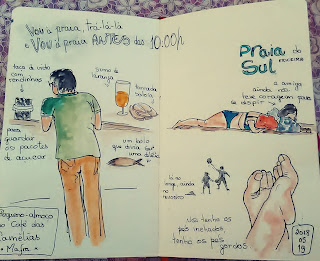 Vou à praia, trá-lá-lá
e Vou à praia ANTES das 10:00h
taça de vidro com
rendinhas
sumo de
laranja
torrada
para
guardar
os pacotes
de açúcar
um bolo
que devia ser
uma
Pequeno-almoço
no Café das
Camélias
Praia do
Sul
ERICEIRA
a amiga
ainda não
teve coragem para
se despir
lá no
longe, ainda
no
Uns tenho os
pés inchados,
tenho os pés
gordos
2018
05
19